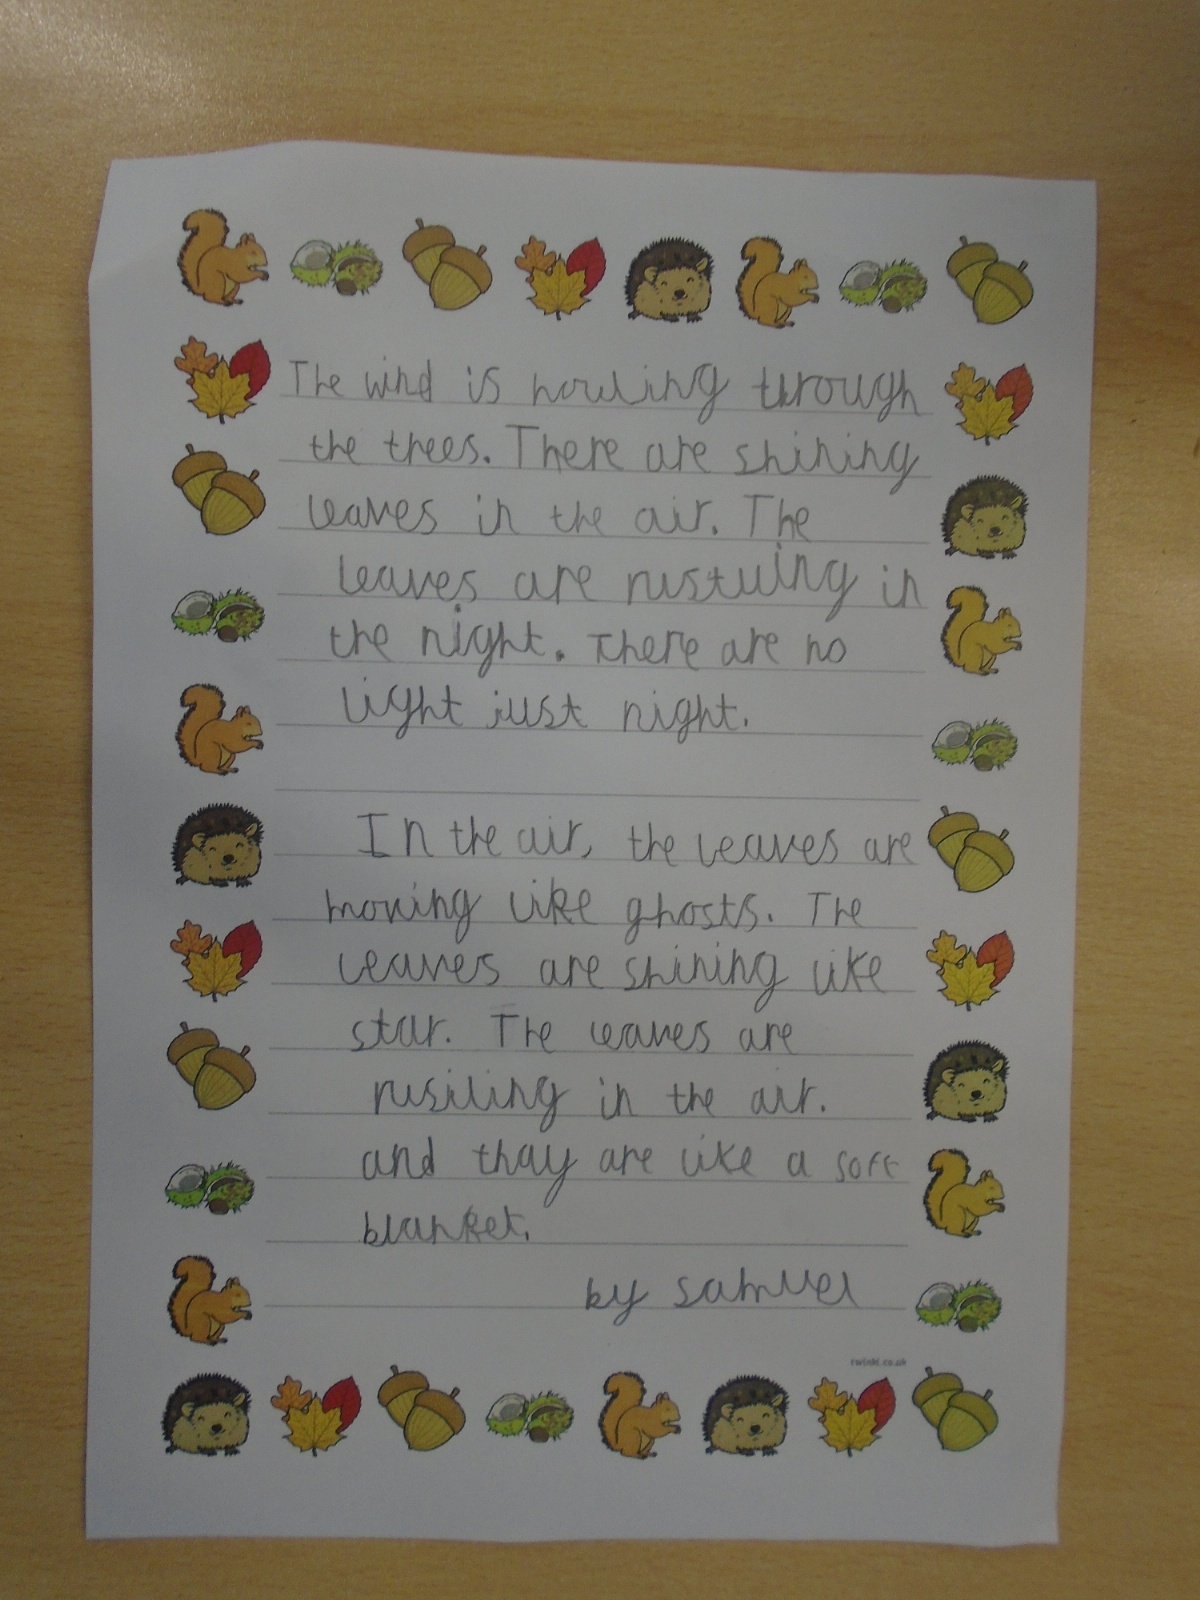 The wind is howling through
the trees. There are shining
leaves in the air. The
leaves are rustling in
the night. There are no
light just night.
In the air, the leaves are
moving like ghosts. The
leaves are shining like
star. The leaves are
rusiling in the air.
and thay are like a soft
blanket.
by samuel
twinkl.co.uk